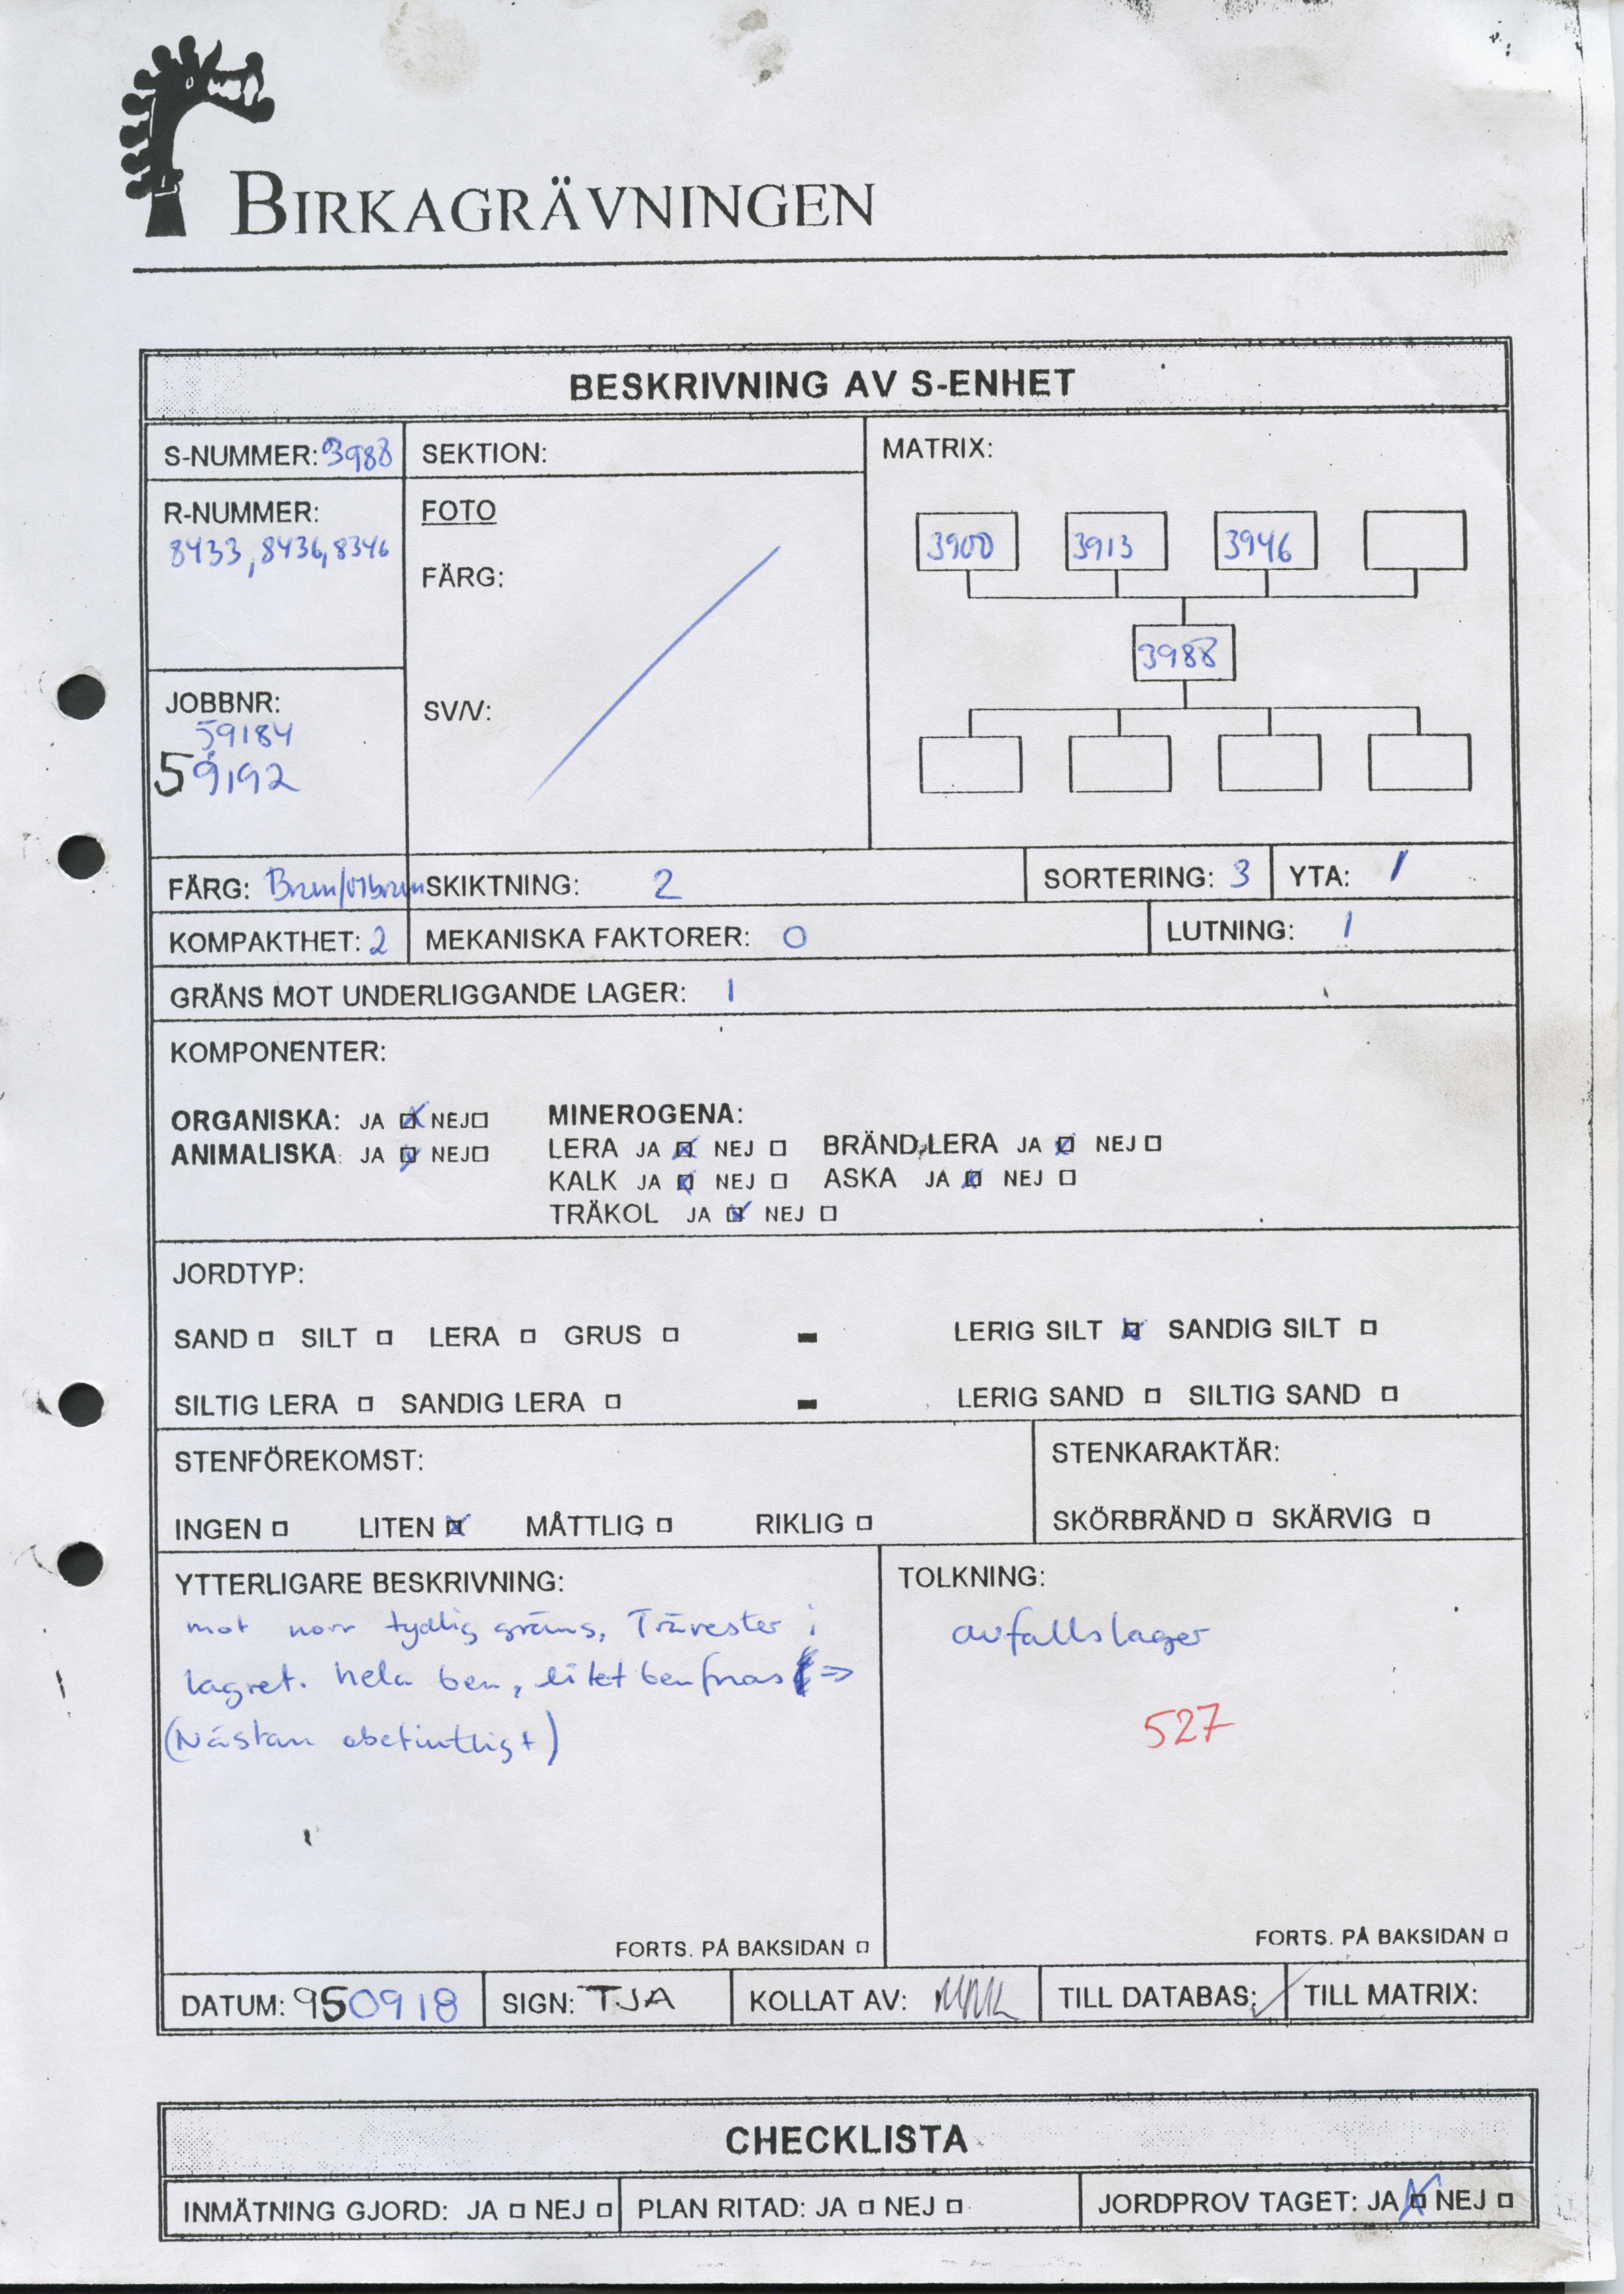 BIRKAGRÄVNINGEN
BESKRIVNING AV S-ENHET
S-NUMMER: 3988
SEKTION:
MATRIX:
R-NUMMER:
8433, 8436, 8346
FOTO
FÄRG:
SV/V:
3900 3913 3946
3988
JOBBNR:
59184
59192
FÄRG: Brun/
SKIKTNING: 2
SORTERING: 3
YTA: 1
KOMPAKTHET: 2
MEKANISKA FAKTORER: 0
LUTNING: 1
GRÄNS MOT UNDERLIGGANDE LAGER: 1
KOMPONENTER:
ORGANISKA: JA ☒ NEJ ☐
MINEROGENA:
ANIMALISKA: JA ☒ NEJ ☐
LERA JA ☒ NEJ ☐ BRÄND LERA JA ☒ NEJ ☐
KALK JA ☒ NEJ ☐ ASKA JA ☒ NEJ ☐
TRÄKOL JA ☒ NEJ ☐
JORDTYP:
SAND ☐ SILT ☐ LERA ☐ GRUS ☐ - LERIG SILT ☒ SANDIG SILT ☐
SILTIG LERA ☐ SANDIG LERA ☐ - LERIG SAND ☐ SILTIG SAND ☐
STENFÖREKOMST:
INGEN ☐ LITEN ☒ MÅTTLIG ☐ RIKLIG ☐
STENKARAKTÄR:
SKÖRBRÄND ☐ SKÄRVIG ☐
YTTERLIGARE BESKRIVNING:
mot norr tydlig gräns, Trärester i
lagret. hela ben, litet benfnas =>
(Nästan obefintligt)
FORTS. PÅ BAKSIDAN ☐
TOLKNING:
avfallslager
527
FORTS. PÅ BAKSIDAN ☐
DATUM: 950918
SIGN: TJA
KOLLAT AV:
TILL DATABAS: ✓
TILL MATRIX:
CHECKLISTA
INMÄTNING GJORD: JA ☐ NEJ ☐
PLAN RITAD: JA ☐ NEJ ☐
JORDPROV TAGET: JA ☒ NEJ ☐